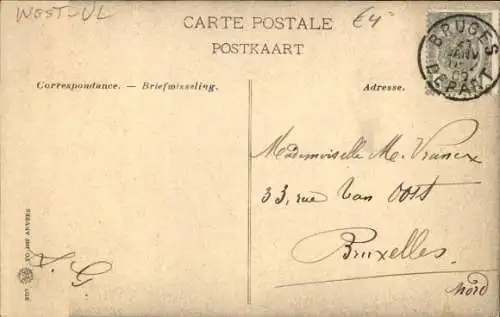 WEST-VL
€4
CARTE POSTALE
POSTKAART
BRUGES
DEPART
Correspondance. — Briefwisseling.
Adresse.
Mademoiselle M. Vrancx
33, rue Van Oost
Bruxelles.
Nord